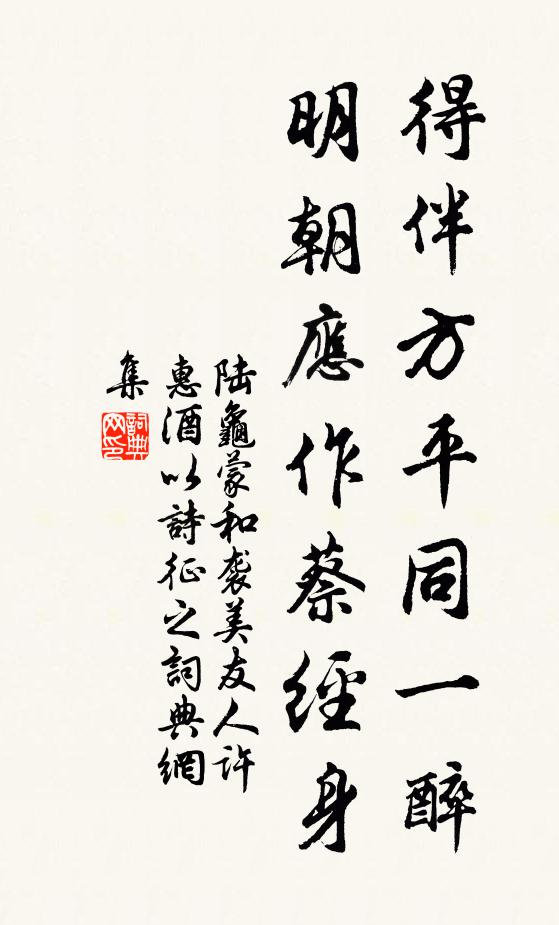 得伴方平同一醉
明朝應作蔡經身
陆龜蒙和袭美友人許
惠酒以詩征之詞典網
集
詞典网印